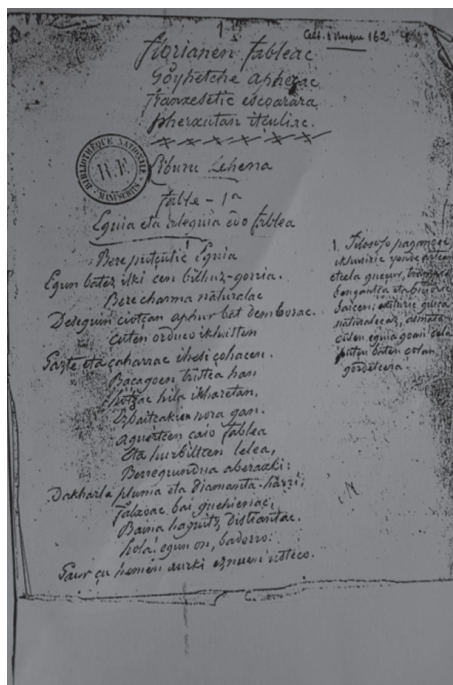 1
Celt. & Basque 162
Florianen fableac
Goyhetche aphezac
franxesetic escoarara
pherxutan itçuliac.
BIBLIOTHÈQUE NATIONALE
R.F.
MANUSCRITS
Liburu Lehena
Fable - 1ª
Eguia eta aleguia edo fablea
Bere putçutic Eguia
Egun batez ilki cen billuz-gorria.
Bere charma naturalac
Desegun ciotçan aphur bat demborac.
Çuten orduco ikhusten
Gazte eta çaharrac ihesi çohacen.
Baçagoen tristea han
hotzac hila ikharetan,
Ezbaitzakien nora gan.
Aguertcen caio fablea
Eta hurbiltcen lelea,
Berregundua aberaxki:
Dakharla pluma eta diamanta-harri;
falxoac bai guehienac,
Baina hagnitz distiantac.
hola! egun on, badarro:
Gaur çu hemen aurki eznuen usteco.
1. Filosofo paganoec
etcela
naturalecoz,
cuten eguia goan cela
putcu baten
gordetcera